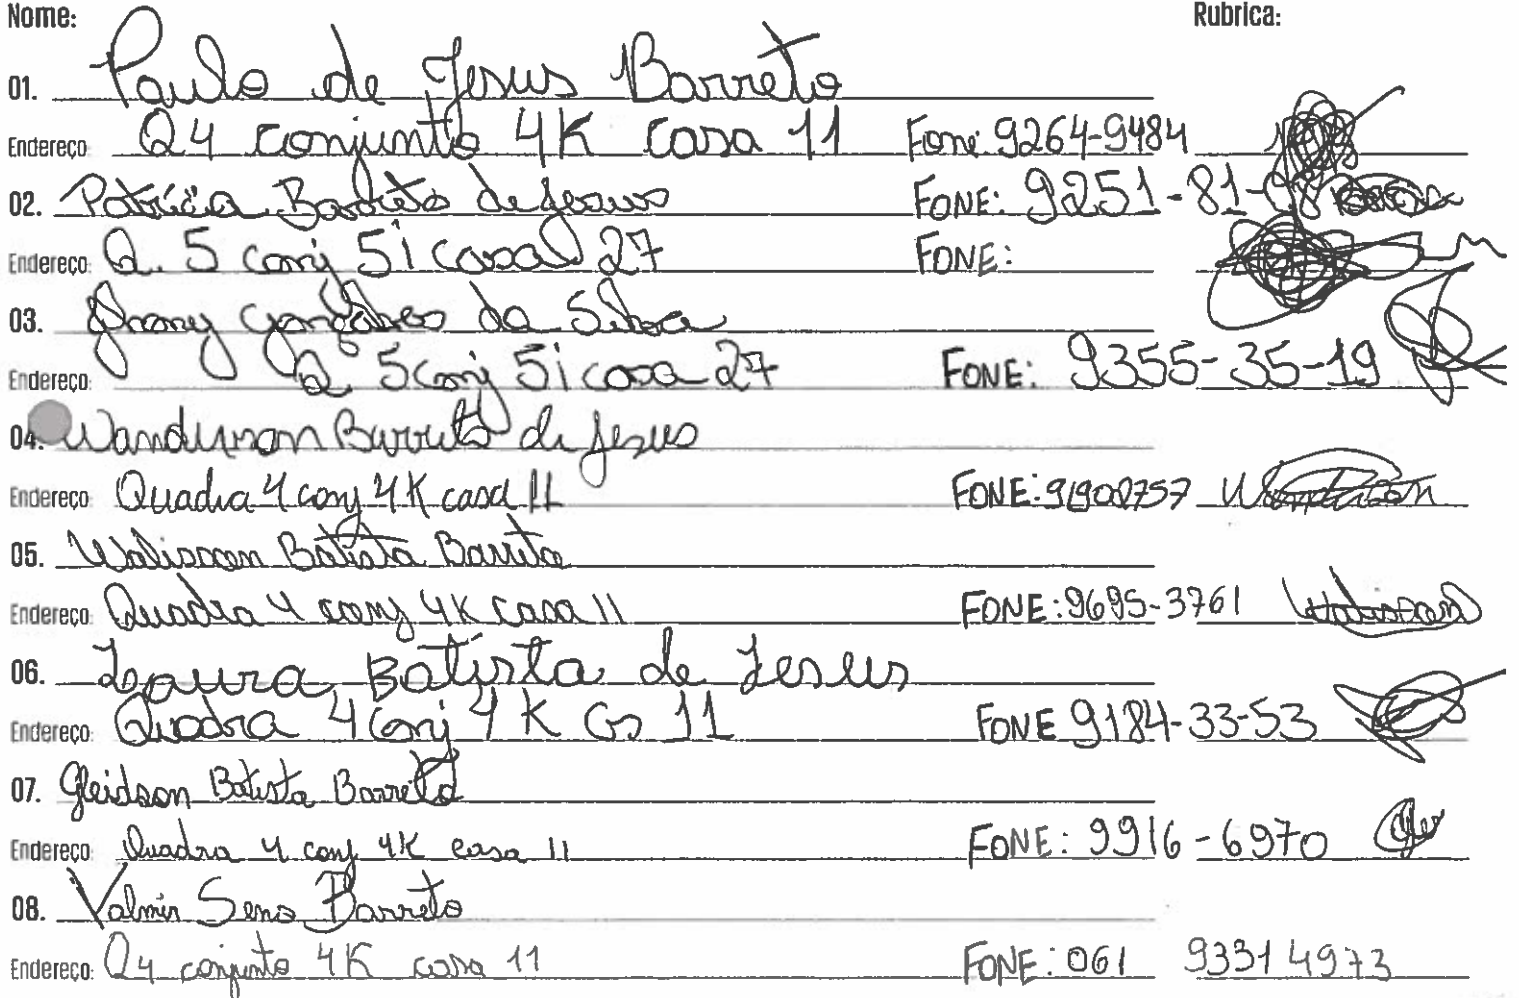 Nome: Rubrica:
01. Paulo de Jesus Barreto
Endereço: Q4 conjunto 4K casa 11 Fone: 9264-9484
02. Patrícia Barreto de Jesus FONE: 9251-81-98
Endereço: Q. 5 conj 5i casa 27 FONE:
03. Gonçalves da Silva
Endereço: Q 5 conj 5i casa 27 FONE: 9355-35-19
04. Wanderson Barreto de Jesus
Endereço: Quadra 4 conj 4K casa 11 FONE: 91900757 Wanderson
05. Walisson Batista Barreto
Endereço: Quadra 4 conj 4K casa 11 FONE: 9695-3761 Walisson
06. Laura Batista de Jesus
Endereço: Quadra 4 conj 4K Cs 11 FONE 9184-33-53
07. Gleidson Batista Barreto
Endereço: Quadra 4 conj 4K casa 11 FONE: 9916-6970
08. Valmir Sena Barreto
Endereço: Q4 conjunto 4K casa 11 FONE: 061 9331 4973